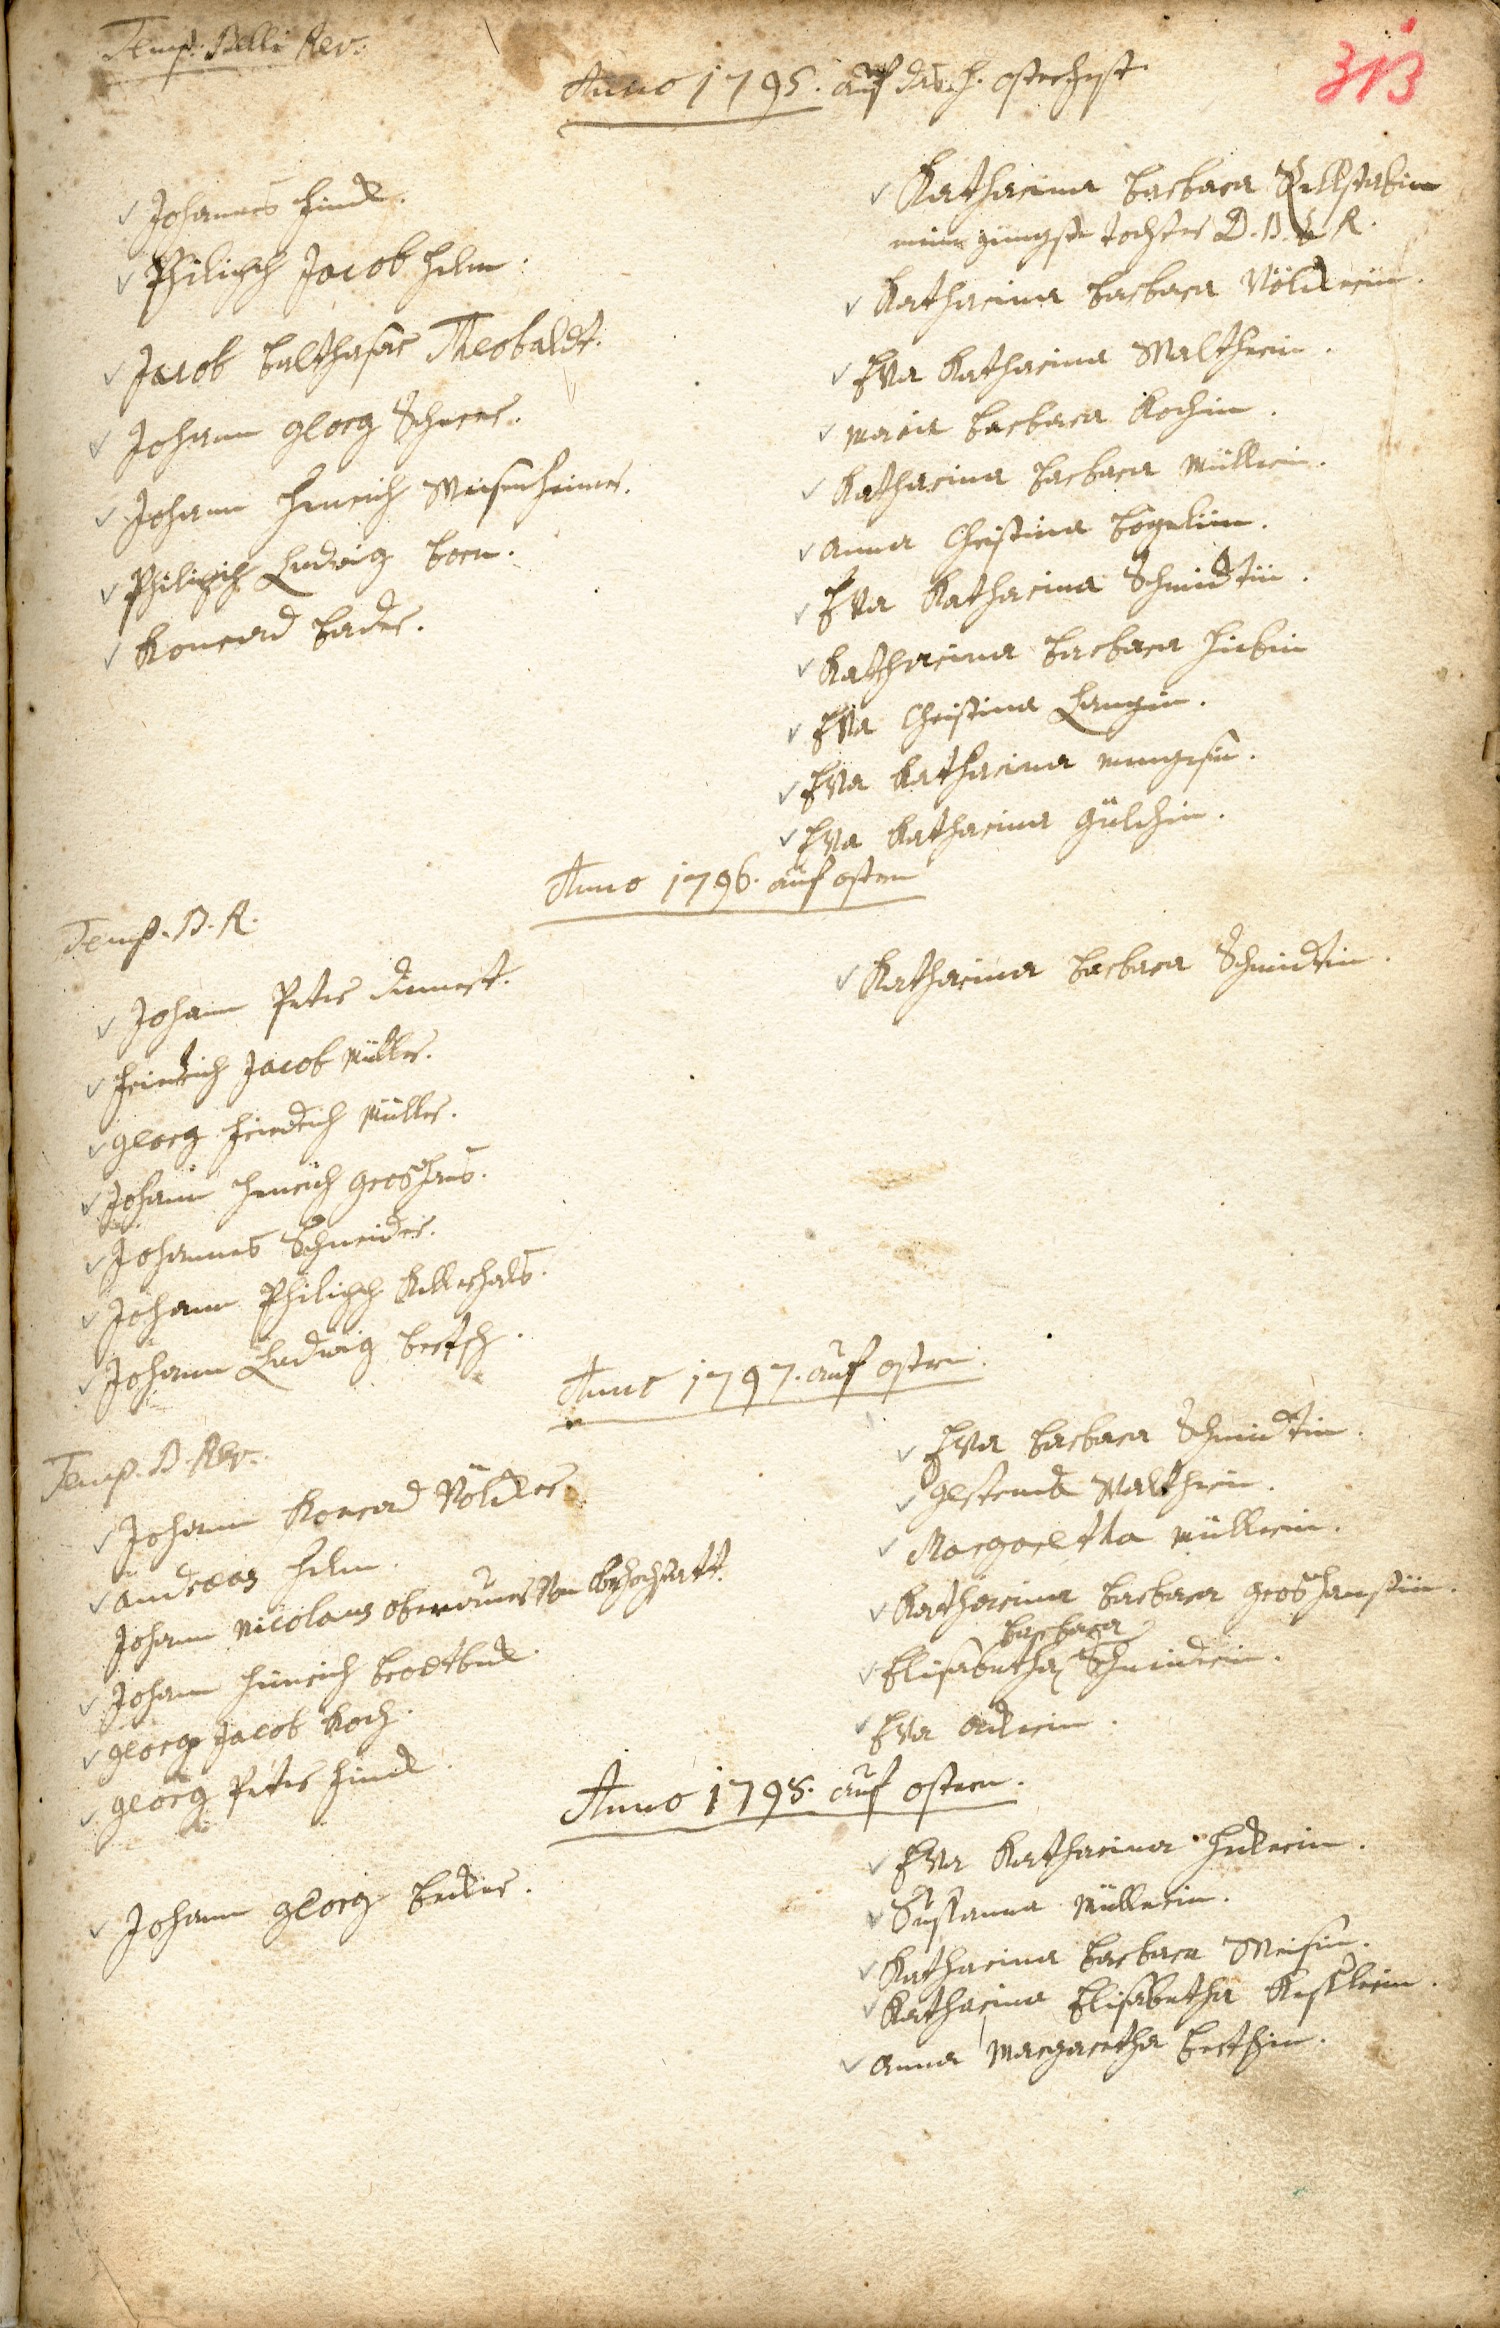 Temp. Belli Rev.
Anno 1795. auf das h. osterfest
313
Johannes Finck.
Philipph Jacob Helm.
Jacob Balthasar Theobaldt.
Johann Georg Scherer.
Johann Henrich Meisenheimer.
Philipph Ludwig Born.
Konrad Bader.
Katharina Barbara Rellstabin
meine jüngste tochter D. B. R.
Katharina Barbara Völckerin.
Eva Katharina Waltherin.
Maria Barbara Kochin.
Katharina Barbara Müllerin.
Anna Christina Bögelin.
Eva Katharina Schmidtin.
Katharina Barbara Hiebin
Eva Christina Langin.
Eva Katharina
Eva Katharina Gülchin.
Anno 1796. auf ostern
Temp. B. R.
Johann Peter
Heinrich Jacob Müller.
Georg Friedrich Müller.
Johann Henrich Groshans.
Johannes Schneider.
Johann Philipph Kellerhals.
Johann Ludwig Bertsch.
Katharina Barbara Schmidtin.
Anno 1797. auf ostern.
Temp. B. Rev.
Johann Konrad Völcker.
Andreas Helm.
Johann Nicolaus von Oberhochstatt.
Johann Henrich Brodtbeck.
Georg Jacob Koch.
Georg Peter Finck.
Eva Barbara Schmidtin.
Gertrud Waltherin.
Margaretha Müllerin.
Katharina Barbara Groshansin.
Barbara
Elisabetha Schneiderin.
Eva Ackerin.
Anno 1798. auf ostern.
Johann Georg Becker.
Eva Katharina Heckerin.
Susanna Müllerin.
Katharina Barbara Weisin.
Katharina Elisabetha Kesslerin.
Anna Margaretha Bertschin.